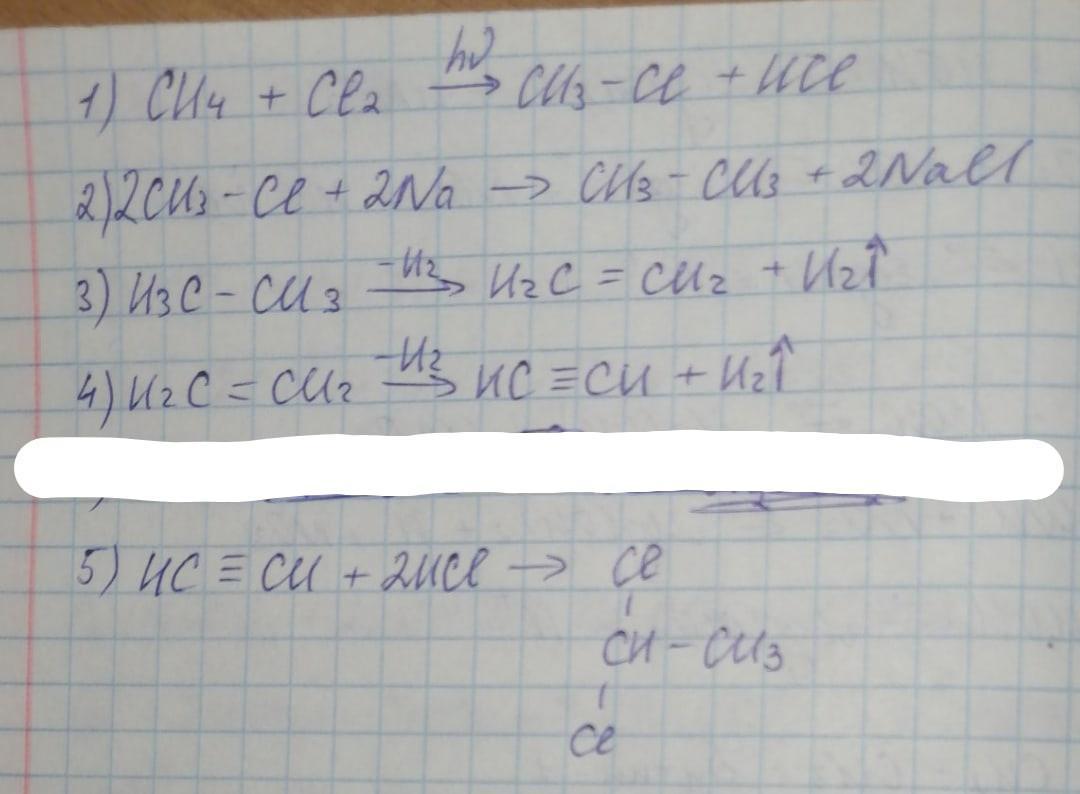 hν
1) CH₄ + Cl₂ → CH₃-Cl + HCl
2) 2CH₃-Cl + 2Na → CH₃-CH₃ + 2NaCl
-H₂
3) H₃C-CH₃ → H₂C=CH₂ + H₂↑
-H₂
4) H₂C=CH₂ → HC≡CH + H₂↑
5) HC≡CH + 2HCl → Cl
CH-CH₃
Cl